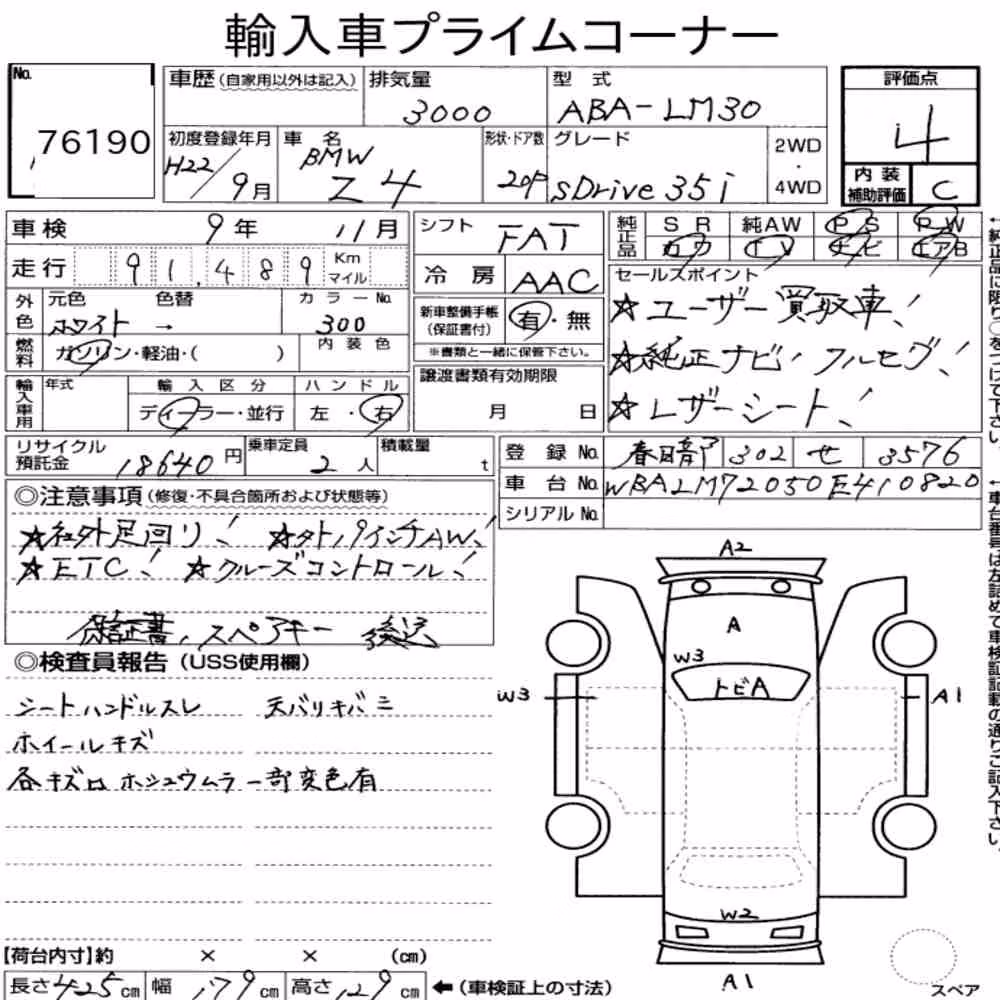 輸入車プライムコーナー
No. 76190
車歴(自家用以外は記入) 排気量 3000 型式 ABA-LM30
初度登録年月 H22/9月 車名 BMW Z4 形状・ドア数 2OP グレード sDrive35i 2WD・4WD
評価点 4
内装補助評価 C
車検 9年 11月
走行 91,489 Km マイル
外色 元色 ホワイト 色替 → カラーNo. 300
燃料 ガソリン・軽油・( ) 内装色
輸入車用 年式 輸入区分 ディーラー・並行 ハンドル 左・右
シフト FAT
冷房 AAC
新車整備手帳(保証書付) 有・無
※書類と一緒に保管下さい。
譲渡書類有効期限 月 日
純正品 SR 純AW PS PW
カワ TV ナビ エアB
セールスポイント
☆ユーザー買取車!
☆純正ナビ!フルセグ!
☆レザーシート!
←純正品に限り○をつけて下さい。
リサイクル預託金 18640円 乗車定員 2人 積載量 t
登録No. 春日部 302 せ 3576
車台No. WBALM72050E410820
シリアルNo.
←車台番号は左詰めで車検証記載の通りご記入下さい。
◎注意事項(修復・不具合箇所および状態等)
☆社外足回り! ☆社外19インチAW!
☆ETC! ☆クルーズコントロール!
保証書,スペアキー 後送
◎検査員報告(USS使用欄)
シートハンドルスレ 天バリキバミ
ホイールキズ
各キズ凹ホシュウムラ一部変色有
A2
A
W3
トビA
W3
A1
W2
A1
スペア
【荷台内寸】約 × × (cm)
長さ425cm 幅179cm 高さ129cm ←(車検証上の寸法)